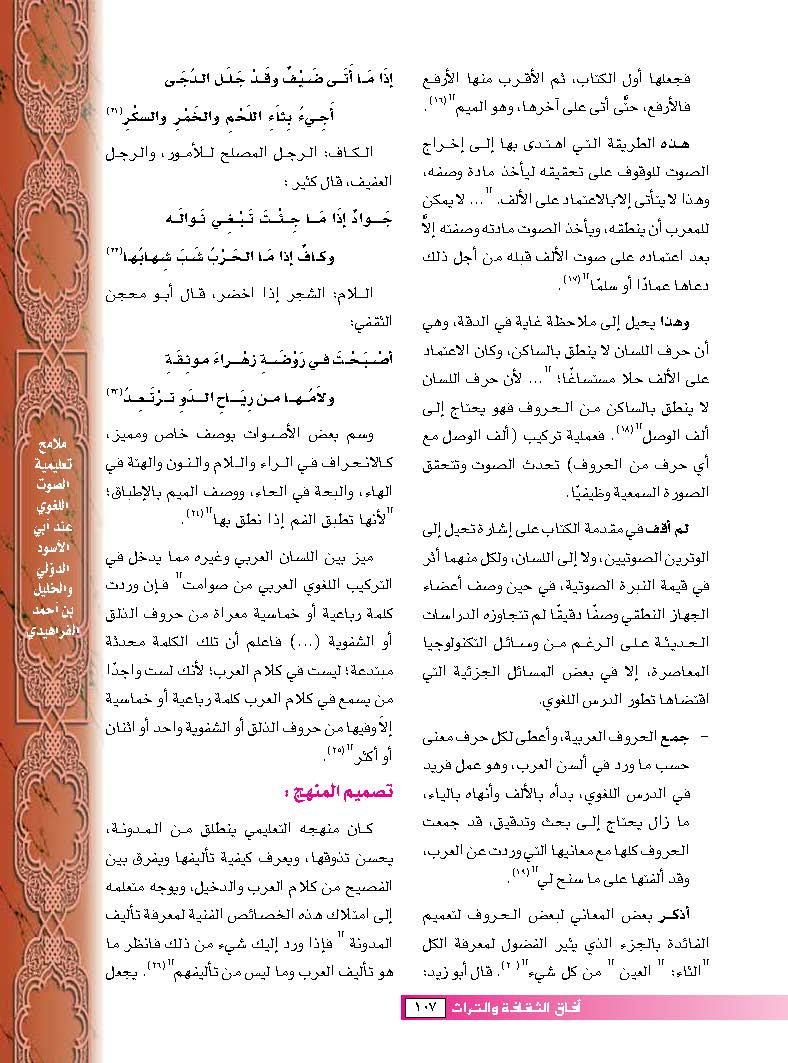 فجعلها أول الكتاب، ثم الأقرب منها الأرفع
فالأرفع، حتَّى أتى على آخرها، وهو الميم"(١٦).
هذه الطريقة التي اهتدى بها إلى إخراج
الصوت للوقوف على تحقيقه ليأخذ مادة وصفه،
وهذا لا يتأتى إلا بالاعتماد على الألف. "... لا يمكن
للمعرب أن ينطقه، ويأخذ الصوت مادته وصفته إلاَّ
بعد اعتماده على صوت الألف قبله من أجل ذلك
دعاها عمادًا أو سلمًا"(١٧).
وهذا يحيل إلى ملاحظة غاية في الدقة، وهي
أن حرف اللسان لا ينطق بالساكن، وكان الاعتماد
على الألف حلا مستساغًا؛ "... لأن حرف اللسان
لا ينطق بالساكن من الحروف فهو يحتاج إلى
ألف الوصل"(١٨). فعملية تركيب (ألف الوصل مع
أي حرف من الحروف) تحدث الصوت وتتحقق
الصورة السمعية وظيفيًا.
لم أقف في مقدمة الكتاب على إشارة تحيل إلى
الوترين الصوتيين، ولا إلى اللسان، ولكل منهما أثر
في قيمة النبرة الصوتية، في حين وصف أعضاء
الجهاز النطقي وصفًا دقيقًا لم تتجاوزه الدراسات
الحديثة على الرغم من وسائل التكنولوجيا
المعاصرة، إلا في بعض المسائل الجزئية التي
اقتضاها تطور الدرس اللغوي.
- جمع الحروف العربية، وأعطى لكل حرف معنى
حسب ما ورد في ألسن العرب، وهو عمل فريد
في الدرس اللغوي، بدأه بالألف وأنهاه بالياء،
ما زال يحتاج إلى بحث وتدقيق، قد جمعت
الحروف كلها مع معانيها التي وردت عن العرب،
وقد ألفتها على ما سنح لي"(١٩).
أذكر بعض المعاني لبعض الحروف لتعميم
الفائدة بالجزء الذي يثير الفضول لمعرفة الكل
"الثاء: " العين " من كل شيء"(٢٠). قال أبو زيد:
إذَا مَا أَتَى ضَيْفٌ وقَدْ جَلَل الدُجَى
أَجِيءُ بِثَاءِ اللَحْمِ والخَمْرِ والسكْرِ(٢١)
الكاف: الرجل المصلح للأمور، والرجل
العفيف، قال كثير :
جَوادٌ إذَا مَا جِئْتَ تَبْغِي نَوالَه
وكافٌ إذا مَا الحَرْبُ شَبَ شِهابُها(٢٢)
اللام: الشجر إذا اخضر، قال أبو محجن
الثقفي:
أصْبَحْتَ في رَوْضَةٍ زهْراءَ مونقَةٍ
ولاَمُها من رِيَاحِ الدَوِ تَرْتَعِدُ(٢٣)
وسم بعض الأصوات بوصف خاص ومميز،
كالانحراف في الراء واللام والنون والهتة في
الهاء، والبحة في الحاء، ووصف الميم بالإطباق؛
"لأنها تطبق الفم إذا نطق بها"(٢٤).
ميز بين اللسان العربي وغيره مما يدخل في
التركيب اللغوي العربي من صوامت" فإن وردت
كلمة رباعية أو خماسية معراة من حروف الذلق
أو الشفوية (...) فاعلم أن تلك الكلمة محدثة
مبتدعة؛ ليست في كلام العرب؛ لأنك لست واجدًا
من يسمع في كلام العرب كلمة رباعية أو خماسية
إلاَّ وفيها من حروف الذلق أو الشفوية واحد أو اثنان
أو أكثر"(٢٥).
تصميم المنهج :
كان منهجه التعليمي ينطلق من المدونة،
يحسن تذوقها، ويعرف كيفية تأليفها ويفرق بين
الفصيح من كلام العرب والدخيل، ويوجه متعلمه
إلى امتلاك هذه الخصائص الفنية لمعرفة تأليف
المدونة " فإذا ورد إليك شيء من ذلك فانظر ما
هو تأليف العرب وما ليس من تأليفهم"(٢٦). يجعل
ملامح
تعليمية
الصوت
اللغوي
عند أبي
الأسود
الدؤلي
والخليل
بن أحمد
الفراهيدي
آفاق الثقافة والتراث ١٠٧